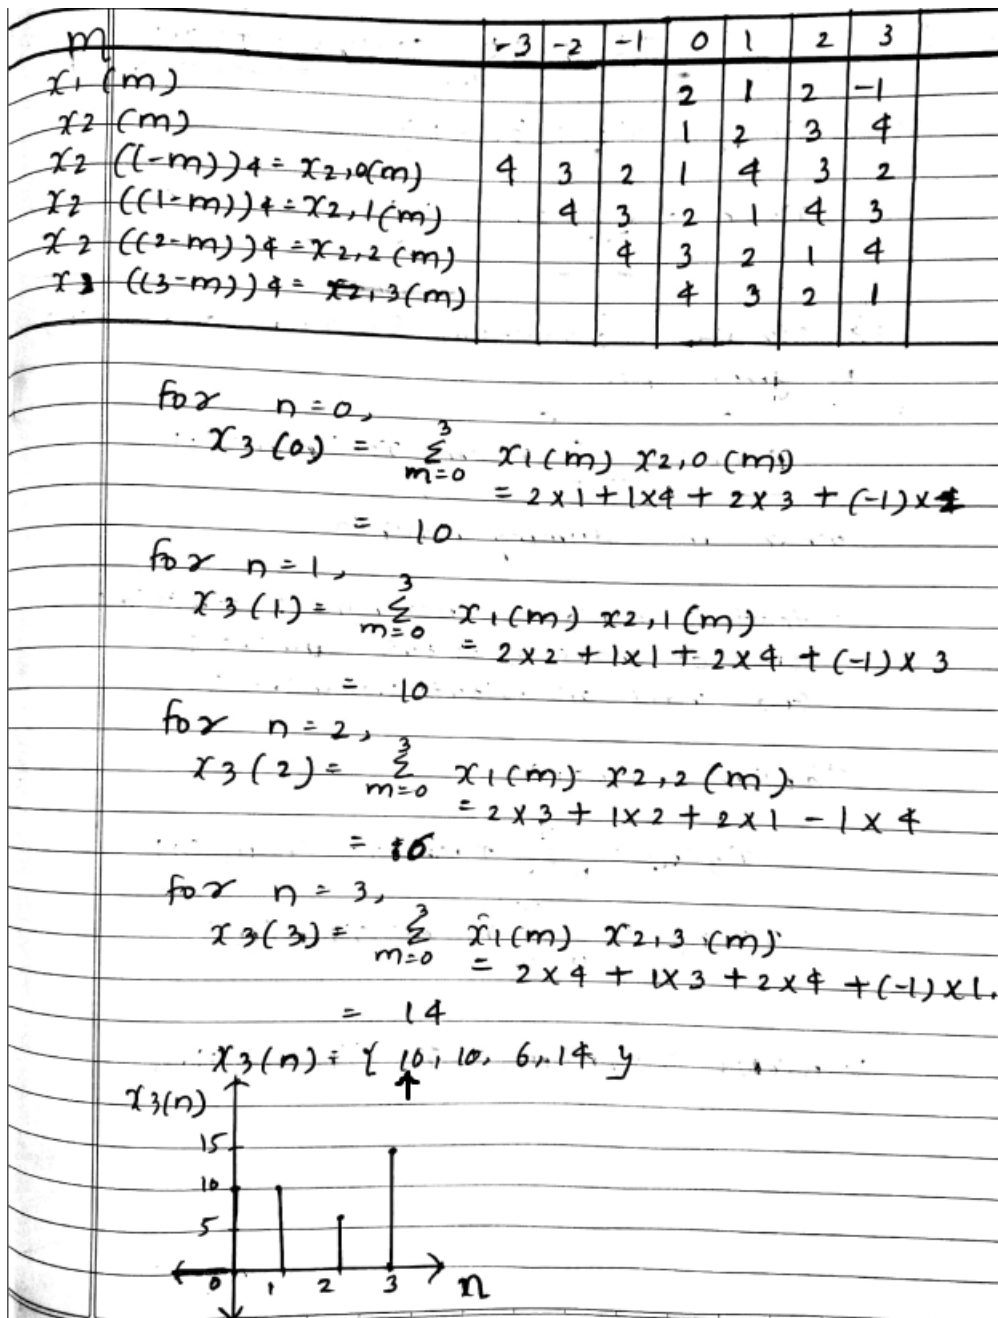 m -3 -2 -1 0 1 2 3
x1 (m) 2 1 2 -1
x2 (m) 1 2 3 4
x2 ((-m))4 = x2,0(m) 4 3 2 1 4 3 2
x2 ((1-m))4 = x2,1(m) 4 3 2 1 4 3
x2 ((2-m))4 = x2,2(m) 4 3 2 1 4
((3-m))4 = x2,3(m) 4 3 2 1
for n=0,
x3(0) = 3Σm=0 x1(m) x2,0(m)
= 2x1 + 1x4 + 2x3 + (-1)x
= 10
for n=1,
x3(1) = 3Σm=0 x1(m) x2,1(m)
= 2x2 + 1x1 + 2x4 + (-1)x3
= 10
for n=2,
x3(2) = 3Σm=0 x1(m) x2,2(m)
= 2x3 + 1x2 + 2x1 - 1x4
= 6
for n=3,
x3(3) = 3Σm=0 x1(m) x2,3(m)
= 2x4 + 1x3 + 2x4 + (-1)x1.
= 14
x3(n) = { 10, 10, 6, 14 }
↑
x3(n)
15
10
5
0 1 2 3 n